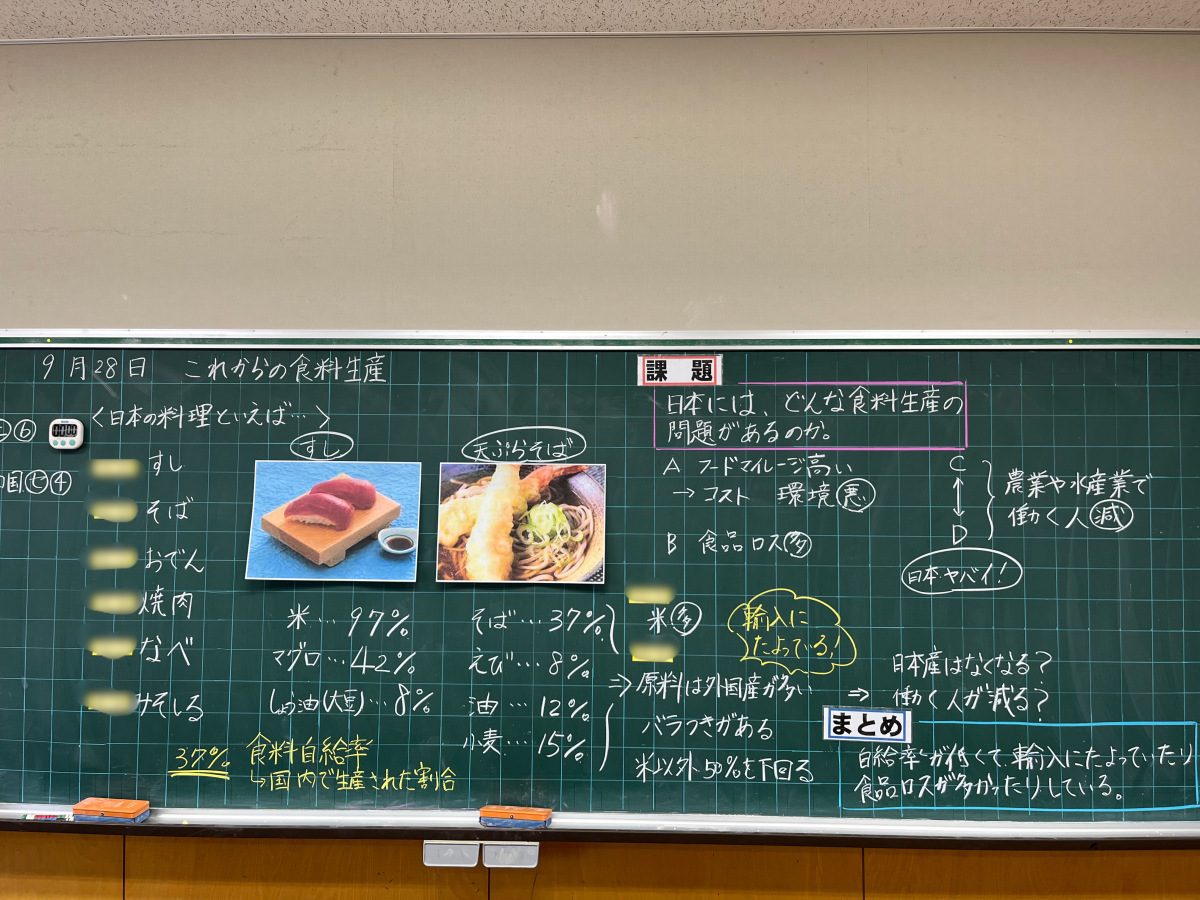 9月28日 これからの食料生産
⑥
国㊆④
〈日本の料理といえば…〉
すし
そば
おでん
焼肉
なべ
みそしる
すし
米…97%
マグロ…42%
しょう油(大豆)…8%
天ぷらそば
そば…37%
えび…8%
油…12%
小麦…15%
37% 食料自給率
↳国内で生産された割合
課題
日本には、どんな食料生産の
問題があるのか。
A フードマイレージ高い
→コスト 環境悪
B 食品ロス多
C
↕
D
農業や水産業で
働く人減
日本ヤバイ!
米多
輸入に
たよっている!
⇒原料は外国産が多い
バラつきがある
米以外50%を下回る
日本産はなくなる?
⇒ 働く人が減る?
まとめ
自給率が低くて、輸入にたよっていたり
食品ロスが多かったりしている。